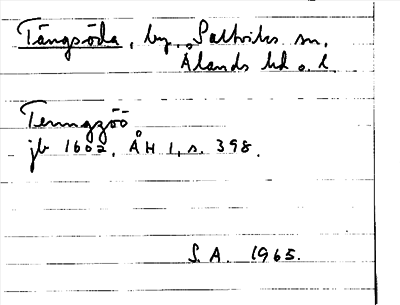 Tängsöda, by, Saltviks sn,
Ålands hd o. l.
Tenngzöö
jb 1602. ÅH 1, s. 398.
S. A. 1965.